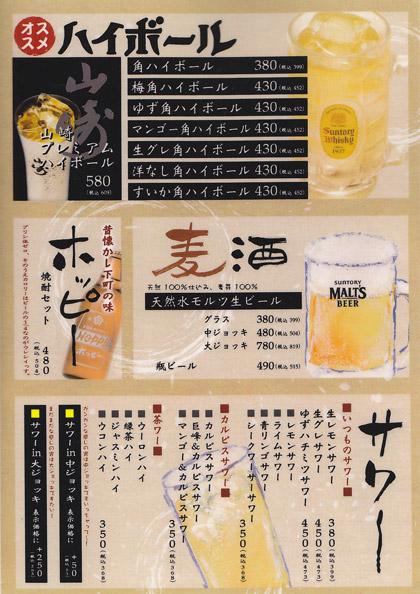 オススメ
ハイボール
山崎
山崎
プレミアム
ハイボール
580
(税込 609)
角ハイボール 380(税込 399)
梅角ハイボール 430(税込 452)
ゆず角ハイボール 430(税込 452)
マンゴー角ハイボール 430(税込 452)
生グレ角ハイボール 430(税込 452)
洋なし角ハイボール 430(税込 452)
すいか角ハイボール 430(税込 452)
Suntory
Whisky
1937
昔懐かし下町の味
ホッピー
焼酎セット
480
(税込504)
麦酒
天然100%仕込み、麦芽100%
天然水モルツ生ビール
グラス 380(税込 399)
中ジョッキ 480(税込 504)
大ジョッキ 780(税込 819)
瓶ビール 490(税込 515)
SUNTORY
MALT'S
BEER
サワー
■いつものサワー■
生レモンサワー 380(税込399)
生グレサワー 450(税込473)
ゆずハチミツサワー 450(税込473)
■レモンサワー
■ライムサワー
■青リンゴサワー
■シークワーサーサワー
350(税込368)
■カルピスサワー■
■カルピスサワー
■巨峰&カルピスサワー
■マンゴー&カルピスサワー
350(税込368)
■茶ワー■
■ウーロンハイ
■緑茶ハイ
■ジャスミンハイ
■ウコンハイ
350(税込368)
サワーin中ジョッキ 表示価格に +50
サワーin大ジョッキ 表示価格に +250